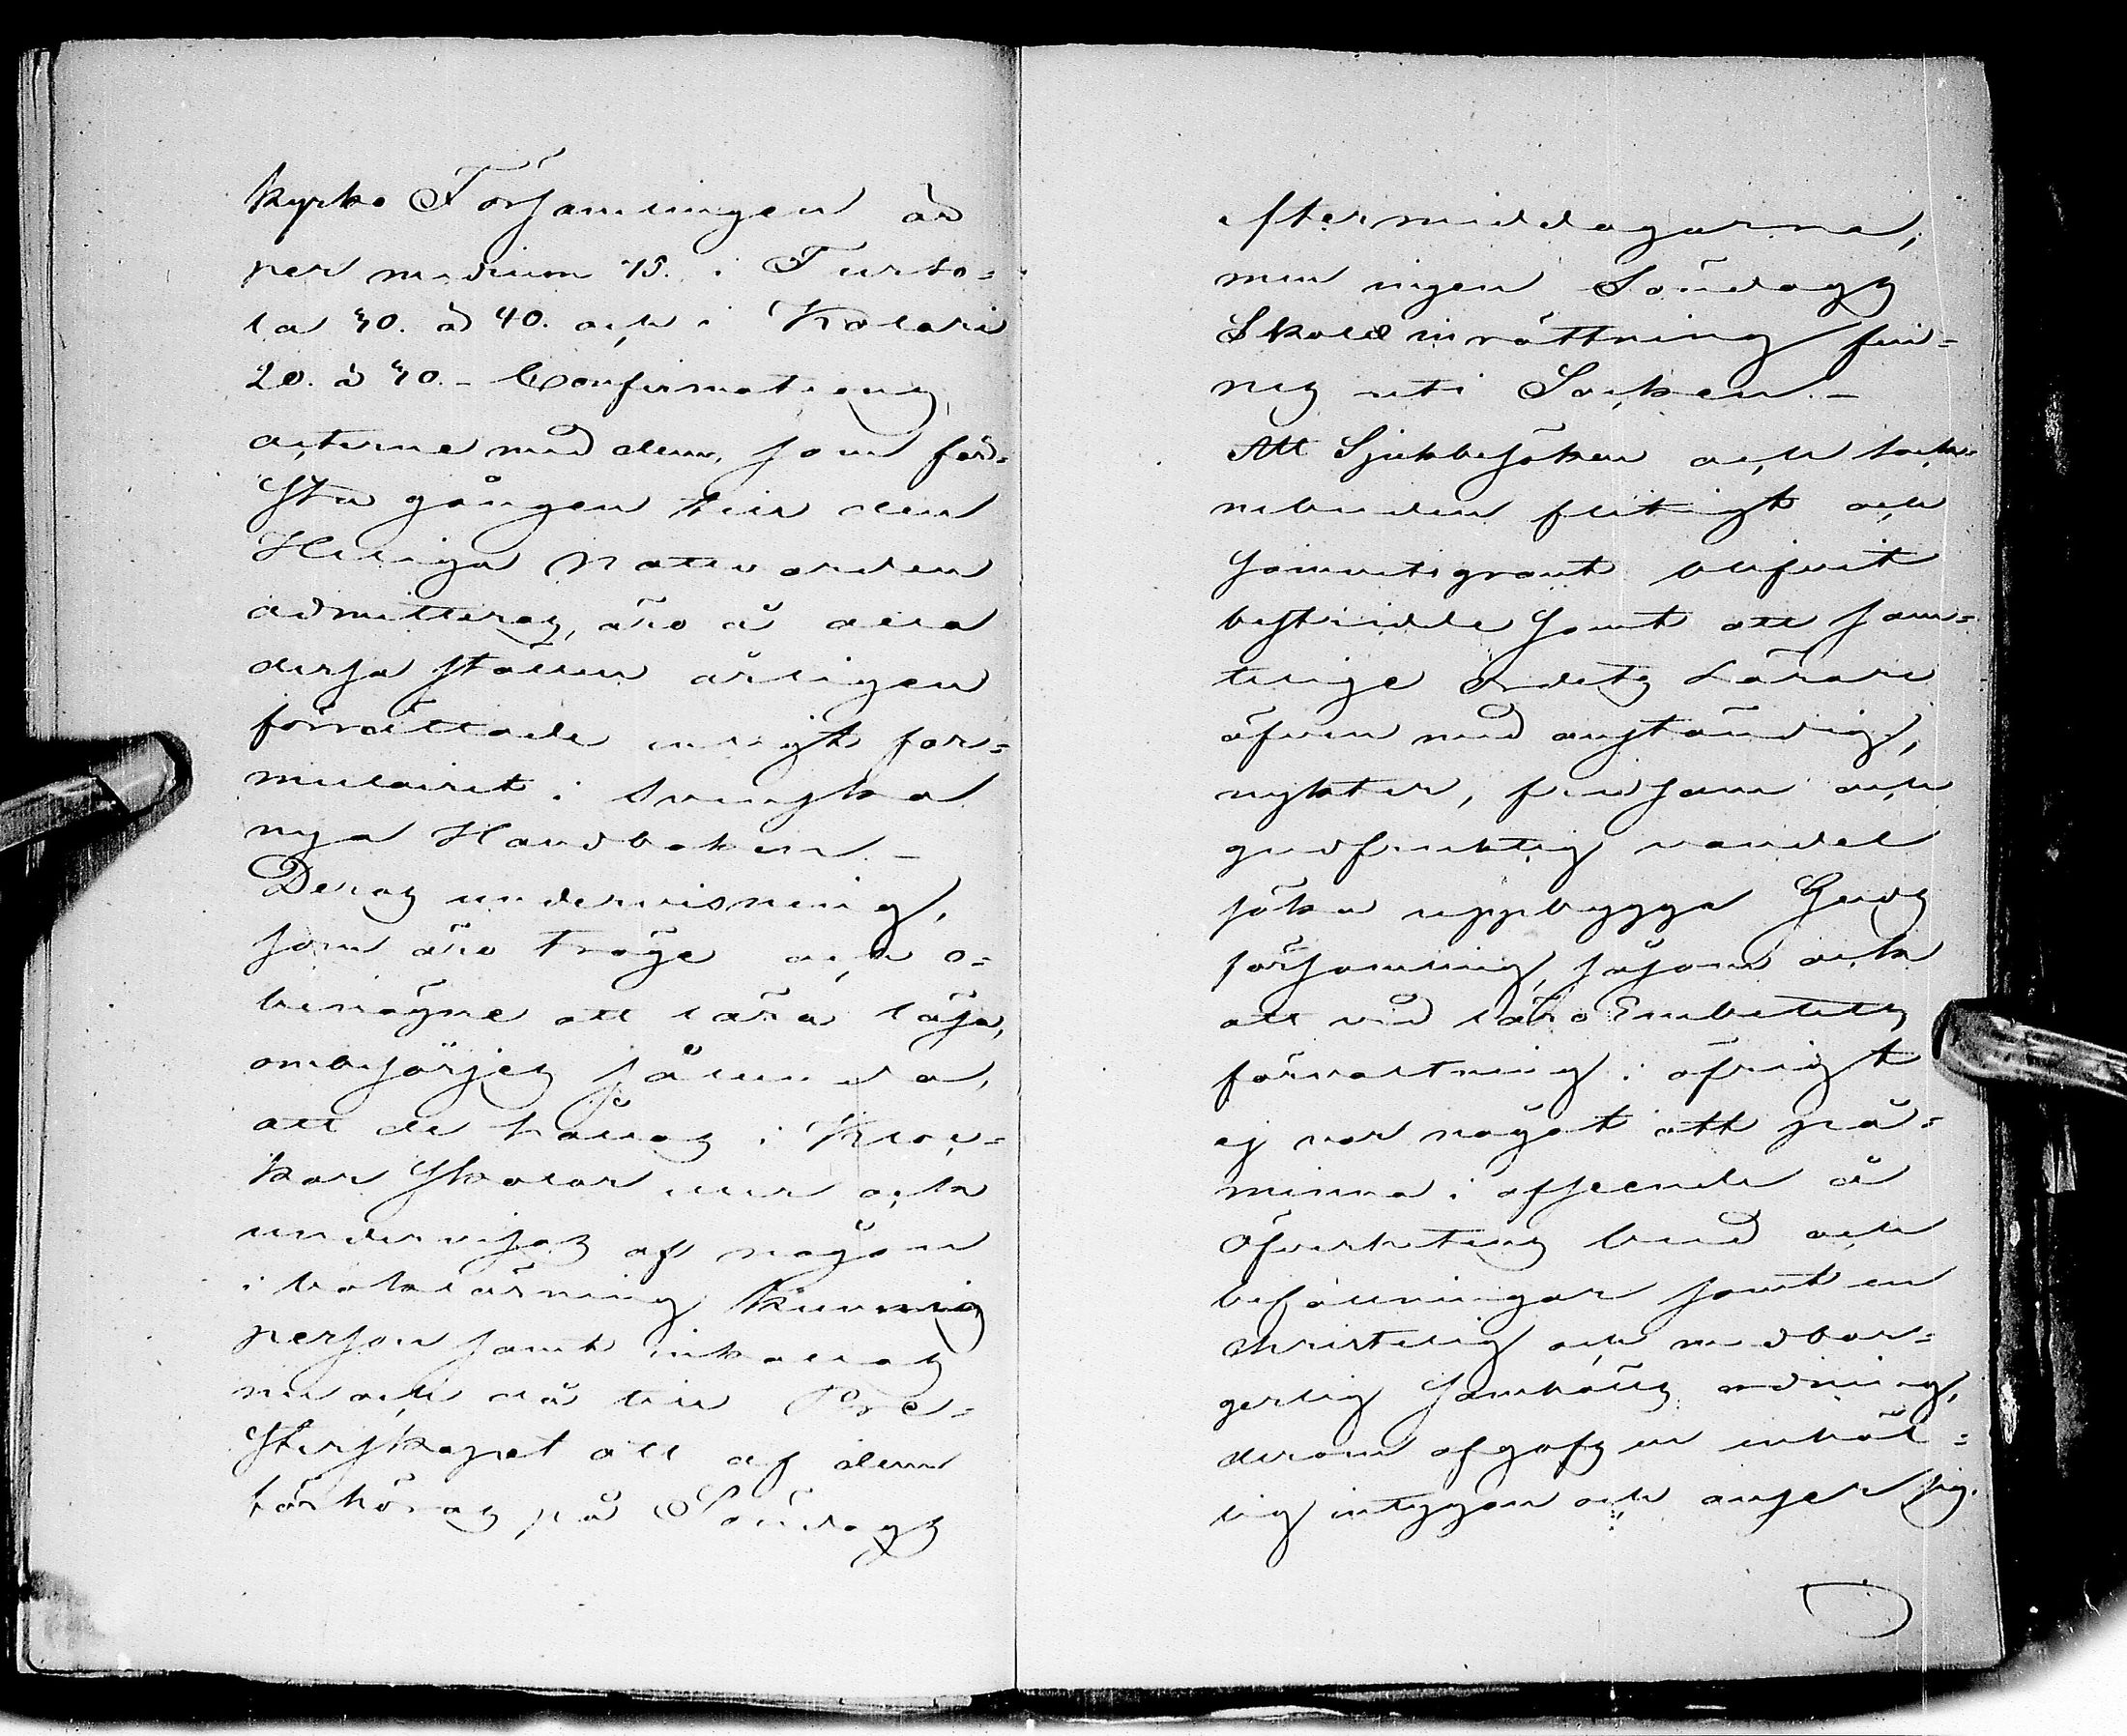 kyrko Församlingen är
per medium 75. i Turto=
la 30. à 40. och i Kolari
20. à 30. - Confirmations
acterne med dem, som för=
sta gången till den
Heliga Nattvarden
admitteras, äro å alla
dessa ställen årligen
förrättade enligt for=
mulairet i Svenska
nya Handboken. -
Deras undervisning,
som äro tröge och o=
benägne att lära läsa,
ombesörjes sålunda,
att de hållas i Kloc=
kar Skolar eller och
undervisas af någon
i boklärning kunnig
person samt inkallas
nu och då till Pre=
sterskapet att af dem
förhöras på Söndags
eftermiddagarne;
men ingen Söndags
Skole inrättning fin=
nes uti Socken. -
Att Sjukbesöken och Sock=
nebuden flitigt och
samvetsgrant blifvit
bestridde samt att sam=
telige Ordets Lärare
äfven med anständig,
nykter, fridsam och
gudfruktig vandel
söka uppbygga Guds
församling, såsom och
att vid läro Embetets
förvaltning i öfrigt
ej var något att på=
minna i afseende å
Öfverhetens bud och
befallningar samt en
christelig och medbor=
gerlig Samhälls ordning,
derom afgafs en enhäl=
lig intygan och anser sig